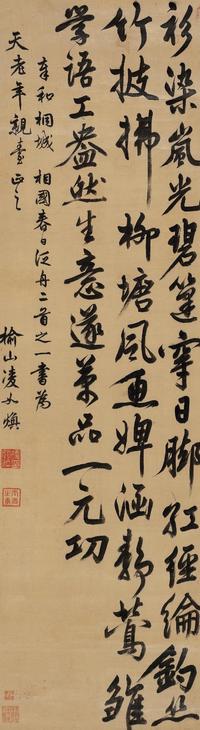 衫染嵐光碧篷穿日腳紅經綸釣絲
竹披拂柳塘風魚婢涵靜鶯雛
學語工盎然生意遂萬品一元功
奉和桐城 相國春日泛舟二首之一書為
天老年親臺正之
榆山凌如煥